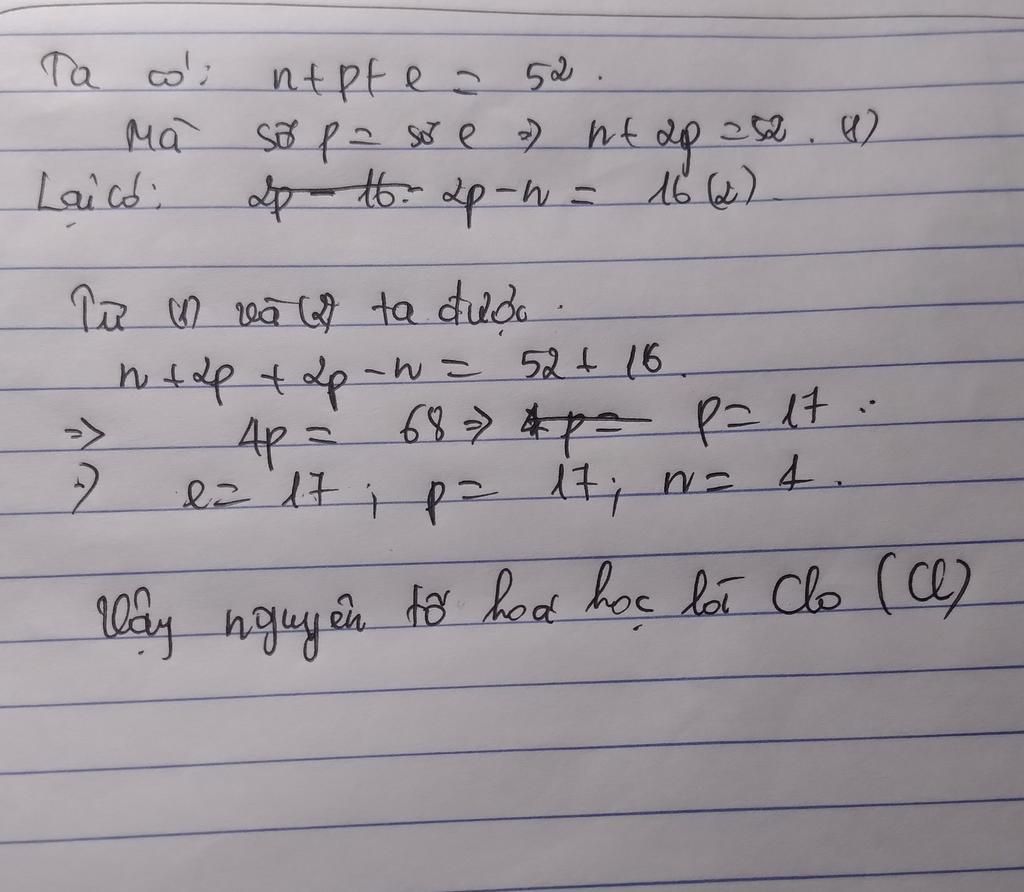 Ta có: n+p+e = 52.
Mà số p = số e => n+2p=52. (1)
Lại có: 2p-16= 2p-n = 16 (2)
Từ (1) và (2) ta được.
n+2p+2p-n = 52+16.
=> 4p = 68 => 4p= p=17.
=> e=17; p=17; n=1.
Vậy nguyên tố hoá học là Clo (Cl)